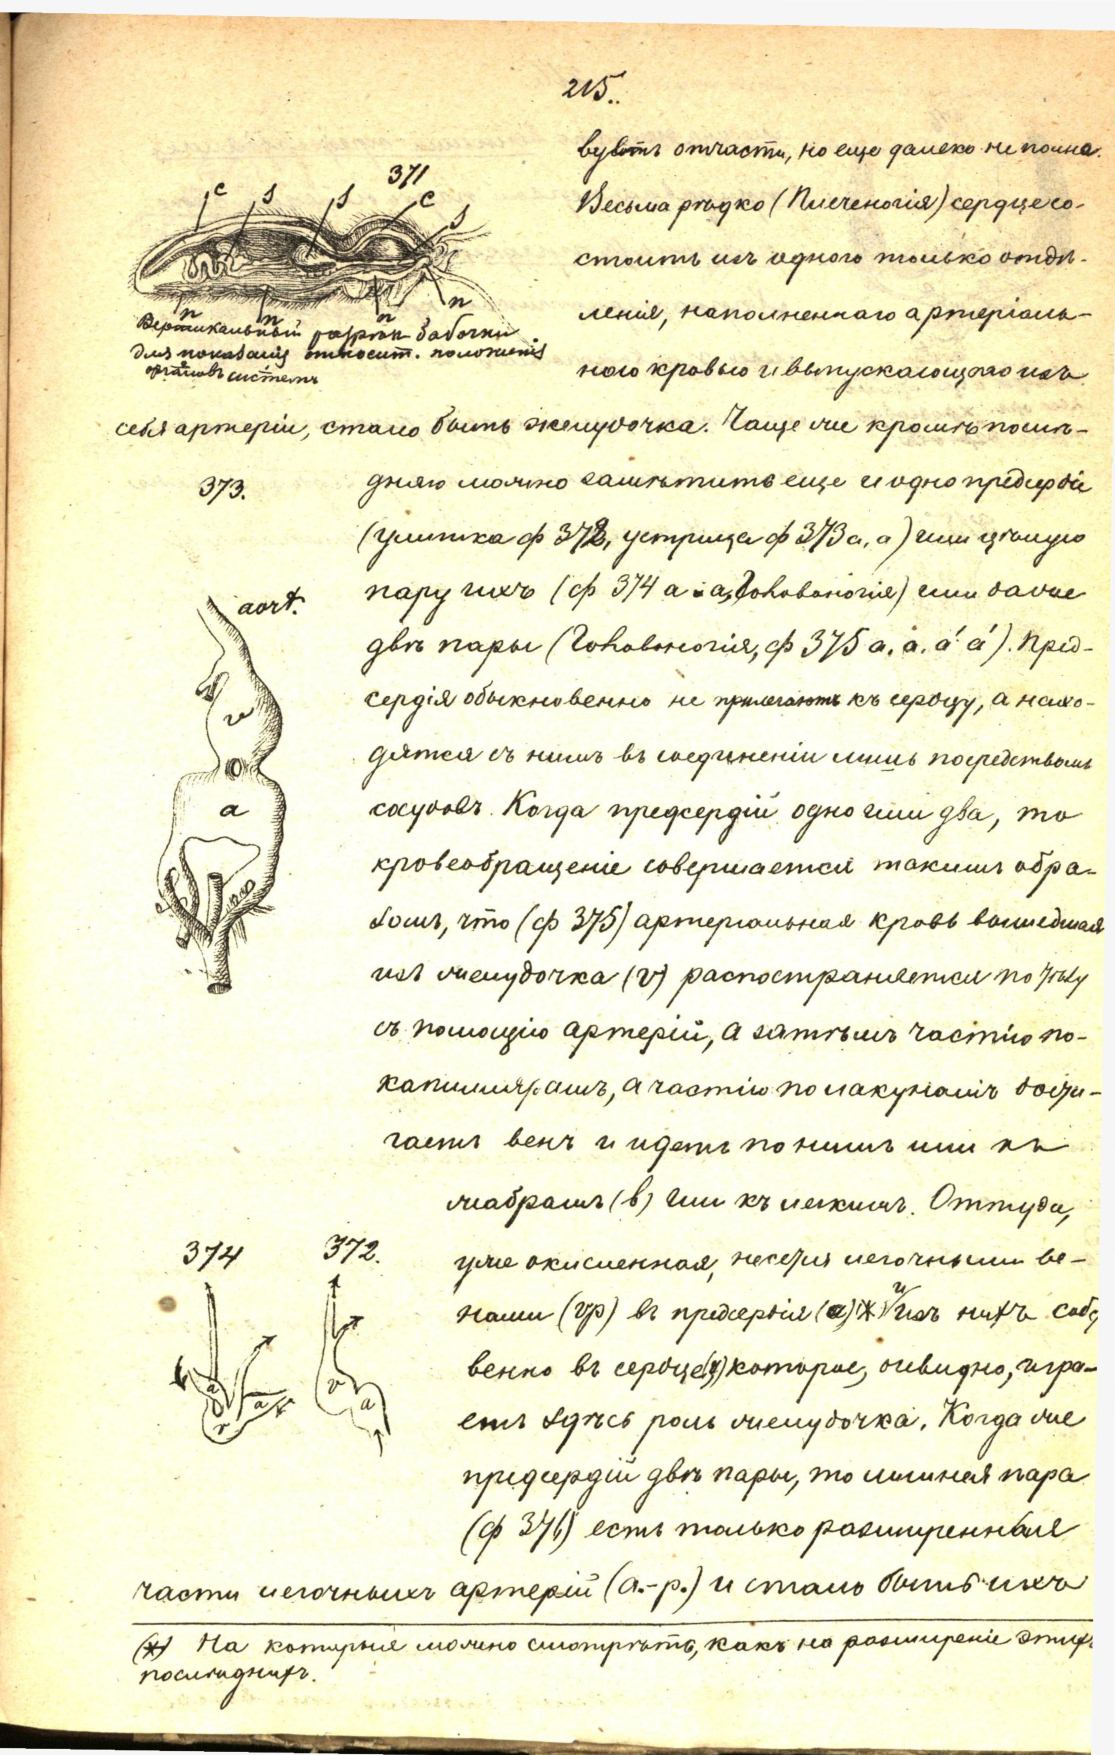 215.
371
c s s c s
n n n n
Вертикальный разрѣзъ бабочки
для показанія относит. положенія
органовъ системъ
вуютъ отчасти, но еще далеко не полна.
Весьма рѣдко (Плеченогія) сердце со-
стоитъ изъ одного только отдѣ-
ленія, наполненнаго артеріаль-
ною кровью и выпускающаго изъ
себя артеріи, стало быть желудочка. Чаще же кромѣ послѣ-
373.
дняго можно замѣтить еще и одно предсердіе
(улитка ф 372, устрица ф 373 a, a) или цѣлую
пару ихъ (ф 374 a a, Головоногія) или даже
двѣ пары (Головоногія, ф 375 a. a. á á). Пред-
сердія обыкновенно не прилегаютъ къ сердцу, а нахо-
дятся съ нимъ въ соединеніи лишь посредствомъ
сосудовъ. Когда предсердій одно или два, то
кровеобращеніе совершается такимъ обра-
зомъ, что (ф 375) артеріальная кровь вышедшая
изъ желудочка (v) распостраняется по тѣлу
съ помощію артерій, а затѣмъ частію по-
капиллярамъ, а частію по лакунамъ дости-
гаетъ венъ и идетъ по нимъ или къ
жабрамъ (в) или къ легкимъ. Оттуда,
aort.
v
a
374
372.
уже окисленная, несется легочными ве-
нами (vp) въ предсердія (a) * и изъ нихъ собс
венно въ сердце (v) которое, очевидно, игра-
етъ здѣсь роль желудочка. Когда же
предсердій двѣ пары, то лишняя пара
(ф 376) есть только расширенныя
части легочныхъ артерій (a.-p.) и стало быть ихъ
b a a v
v a
(*) На которыя можно смотрѣть, какъ на расширеніе этихъ
послѣднихъ.